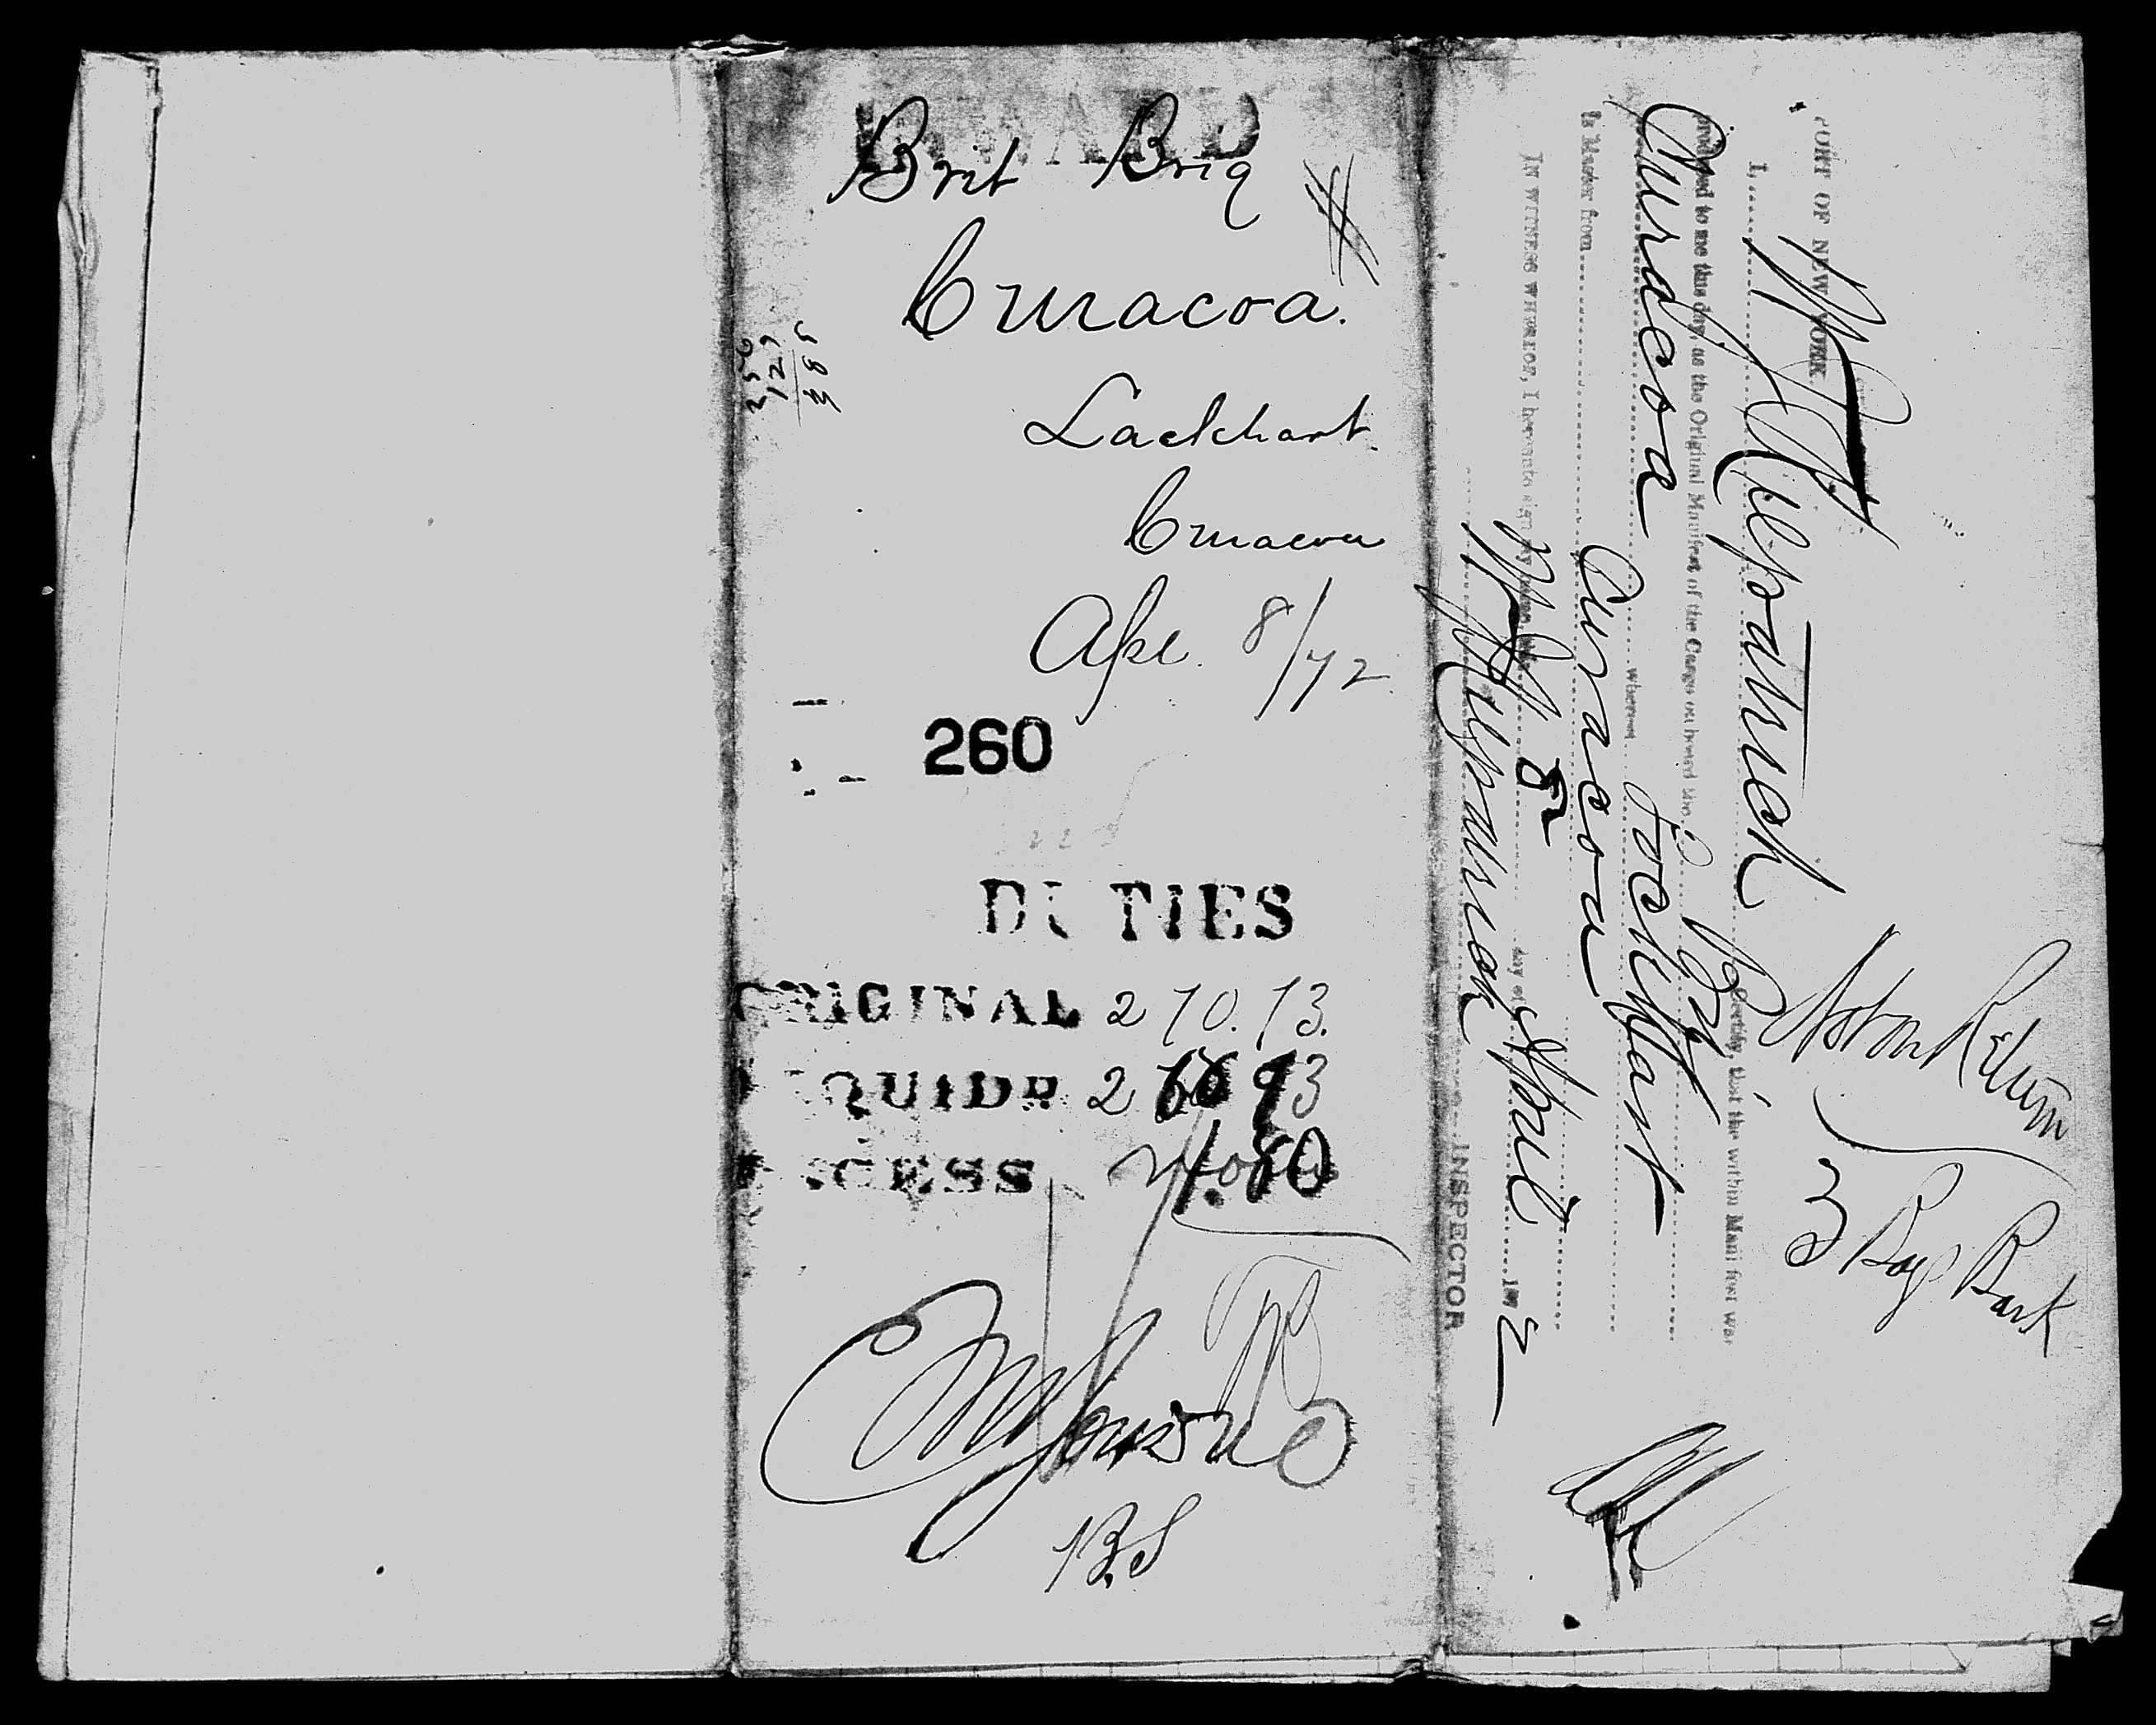 INWARD
Brit Brig
Curacoa.
Lockhart.
Curacoa
Apl. 8/72
260
DUTIES
ORIGINAL 270.73.
LIQUIDD
EXCESS
B.S
PORT OF NEW YORK.
I, Kilpatrick Certify, that the within Manifest was
produced to me this day, as the Original Manifest of the Cargo on board the Br Brig
Curacoa whereof Lockhart
is Master from Curacoa
IN WITNESS WHEREOF, I hereunto sign my name, this 8 day of April 1872
Kilpatrick INSPECTOR
Return
3 Bags Bark